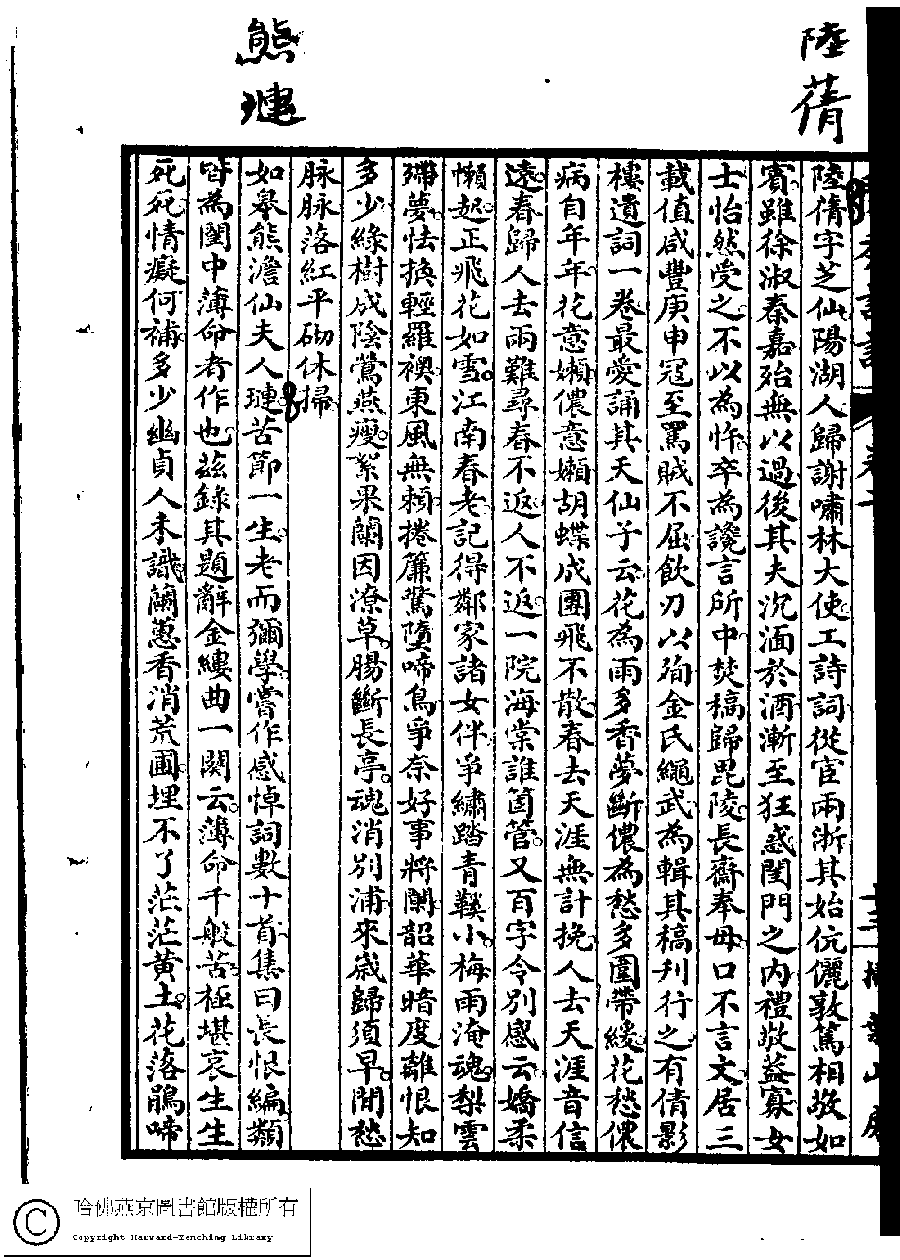 陸蒨
陸蒨字芝仙陽湖人歸謝嘯林大使工詩詞從宦兩浙其始伉儷敦篤相敬如
賓雖徐淑秦嘉殆無以過後其夫沉湎於酒漸至狂惑閨門之內禮敬益寡女
士怡然受之不以為忤卒為讒言所中焚稿歸毘陵長齋奉母口不言文居三
載值咸豐庚申寇至罵賊不屈飲刃以殉金氏繩武為輯其稿刋行之有倩影
樓遺詞一卷最愛誦其天仙子云花為雨多香夢斷儂為愁多圍帶緩花愁儂
病自年年花意嬾儂意嬾胡蝶成團飛不散春去天涯無計挽人去天涯音信
遠春歸人去兩難尋春不返人不返一院海棠誰箇管又百字令別感云嬌柔
懶起正飛花如雪江南春老記得鄰家諸女伴爭繡踏青鞵小梅雨淹魂梨雲
殢夢怯換輕羅襖東風無賴捲簾驚墮啼鳥爭奈好事將闌韶華暗度離恨知
多少綠樹成陰鶯燕瘦絮果蘭因潦草腸斷長亭魂消別浦來歲歸須早閒愁
脉脉落紅平砌休掃
熊璉
如皋熊澹仙夫人璉苦節一生老而彌學嘗作感悼詞數十首集曰長恨編類
皆為閨中薄命者作也茲錄其題辭金縷曲一闋云薄命千般苦極堪哀生生
死死情癡何補多少幽貞人未識蘭蕙香消荒圃埋不了茫茫黃土花落鵑啼
十三
掃葉山房
哈佛燕京圖書館版權所有
Copyright Harvard-Yenching Library